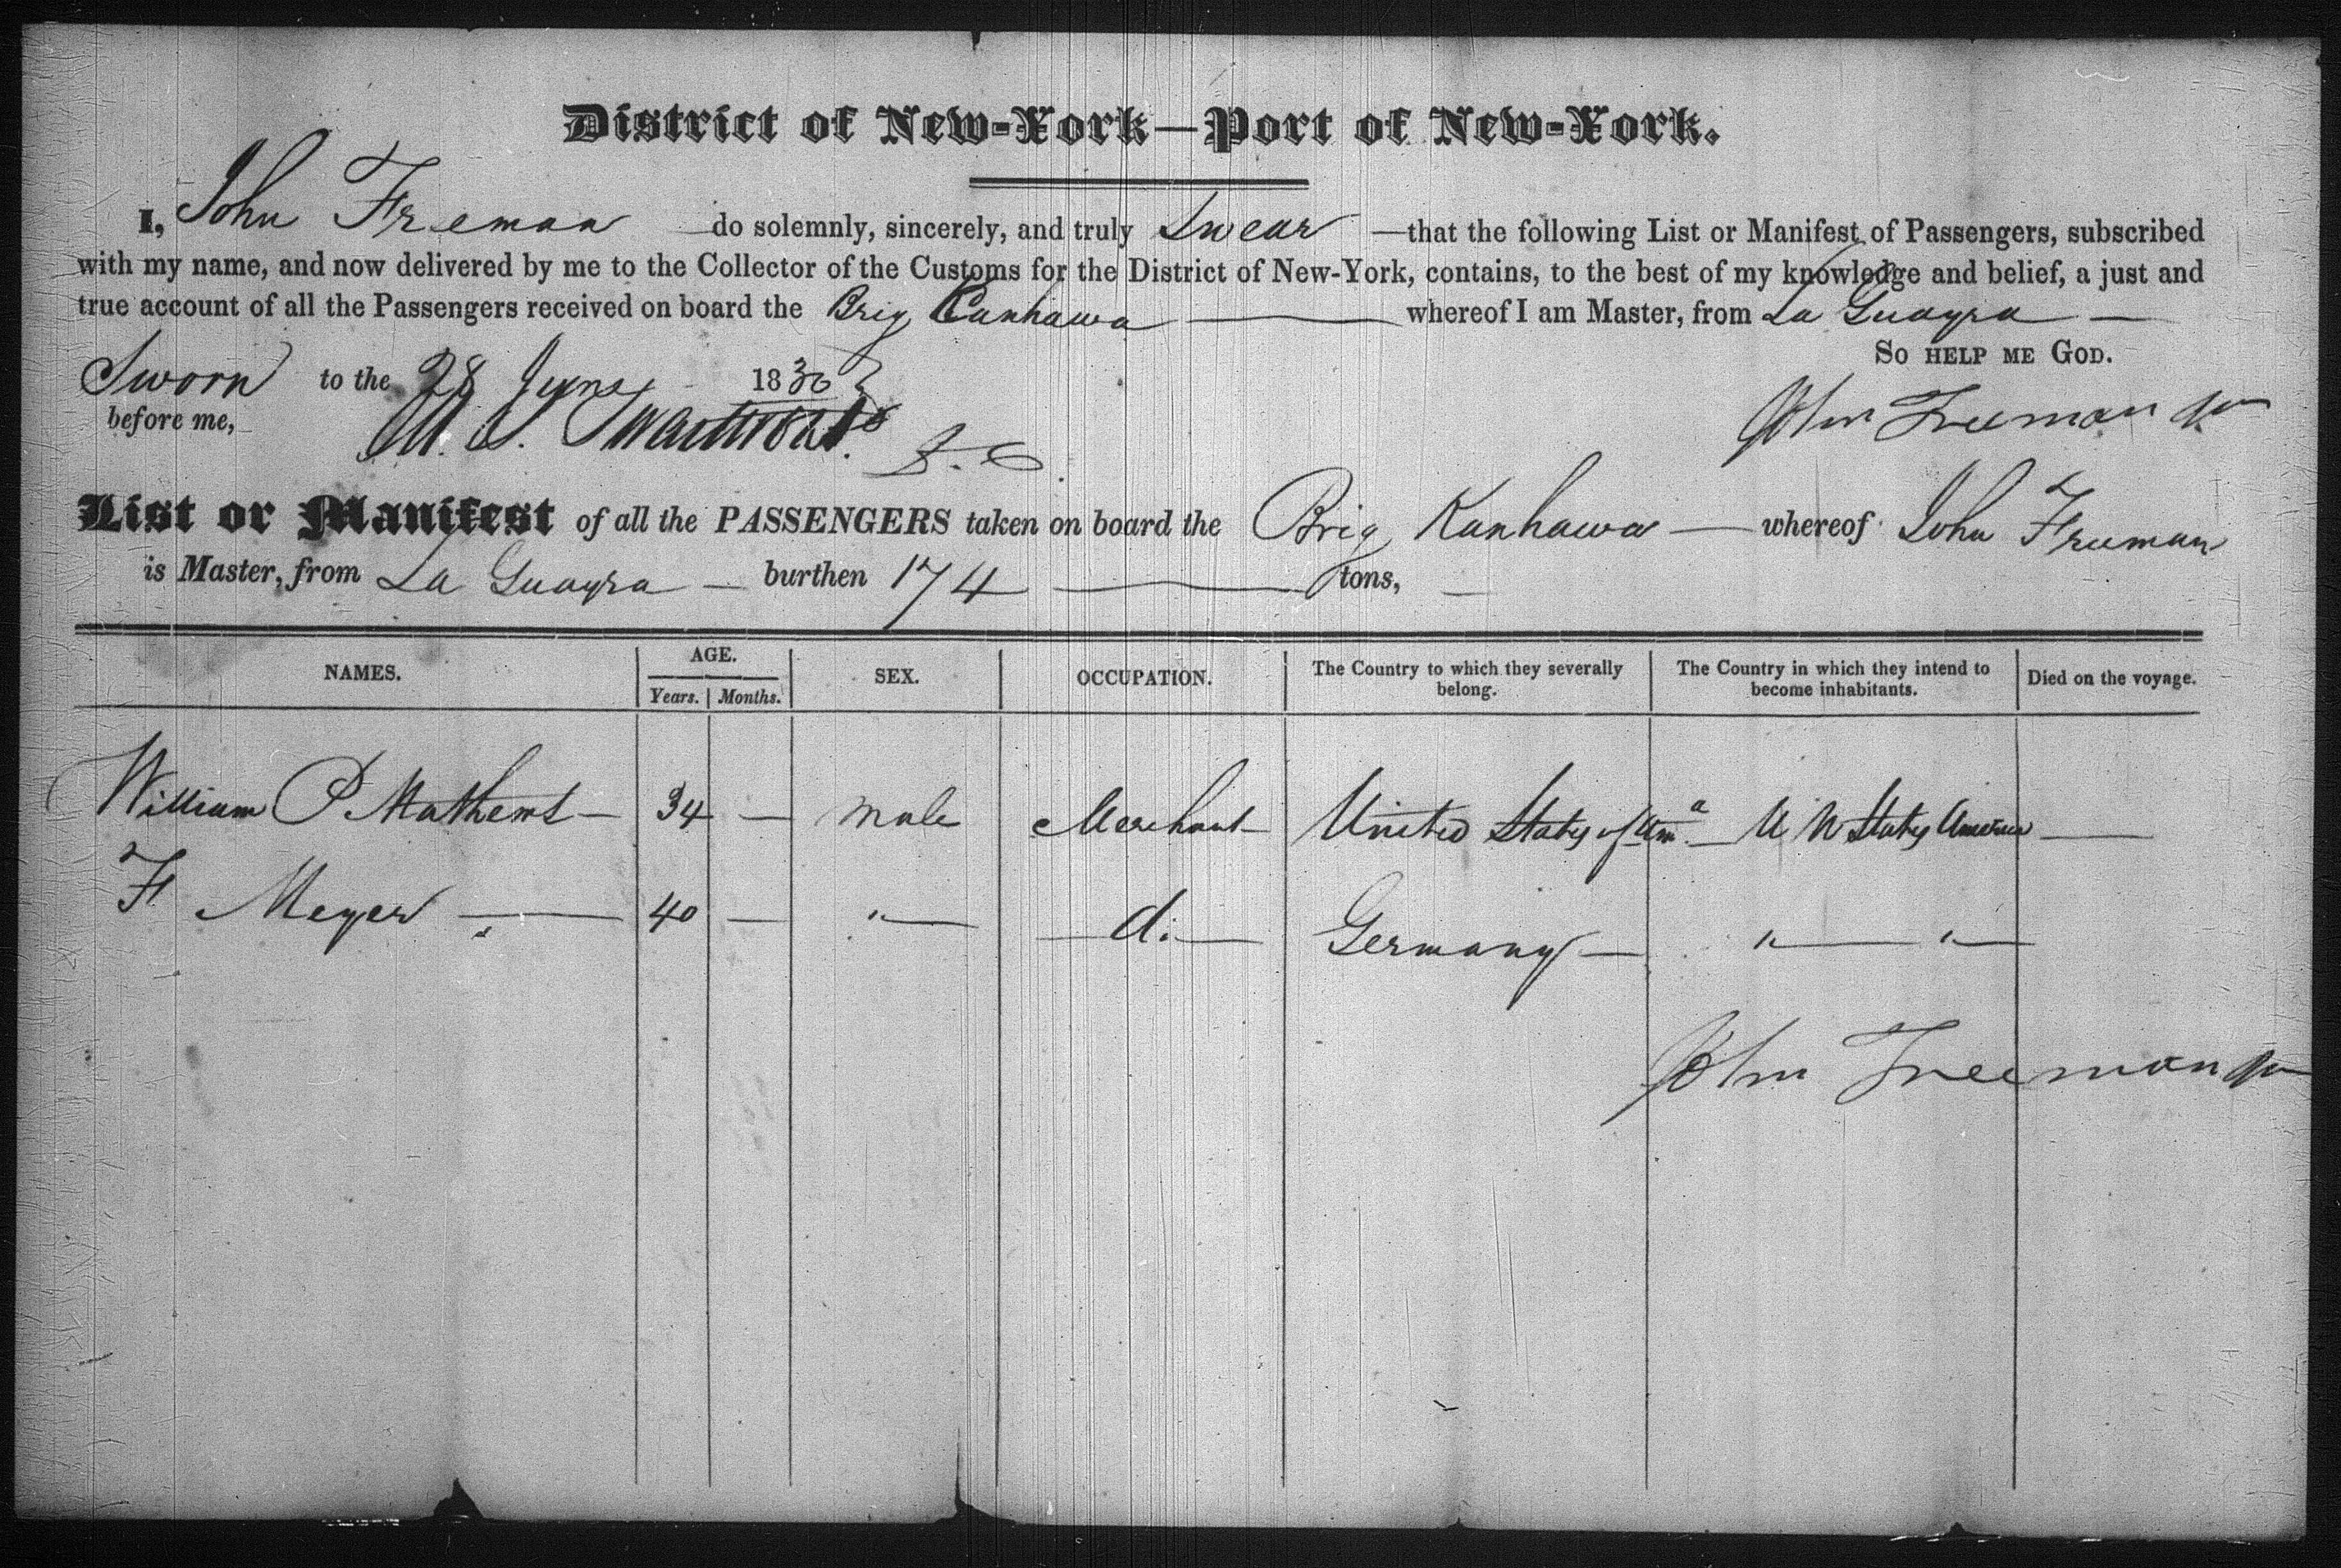 District of New-York—Port of New-York.
I, John Freeman do solemnly, sincerely, and truly Swear —that the following List or Manifest of Passengers, subscribed
with my name, and now delivered by me to the Collector of the Customs for the District of New-York, contains, to the best of my knowledge and belief, a just and
true account of all the Passengers received on board the Brig Canhawa whereof I am Master, from La Guayra —
So help me God.
Sworn to the 28 June 1836
before me,
John Freeman Jr
M. S. Swartwout
List or Manifest of all the PASSENGERS taken on board the Brig Kanhawa — whereof John Freeman
is Master, from La Guayra — burthen 174 tons,
NAMES. AGE. Years. Months. SEX. OCCUPATION. The Country to which they severally belong. The Country in which they intend to become inhabitants. Died on the voyage.
William P Mathews — 34 — male Merchant United States of Ama. — U States America —
F Meyer — 40 — " — do — Germany — " — " —
John Freeman Jr